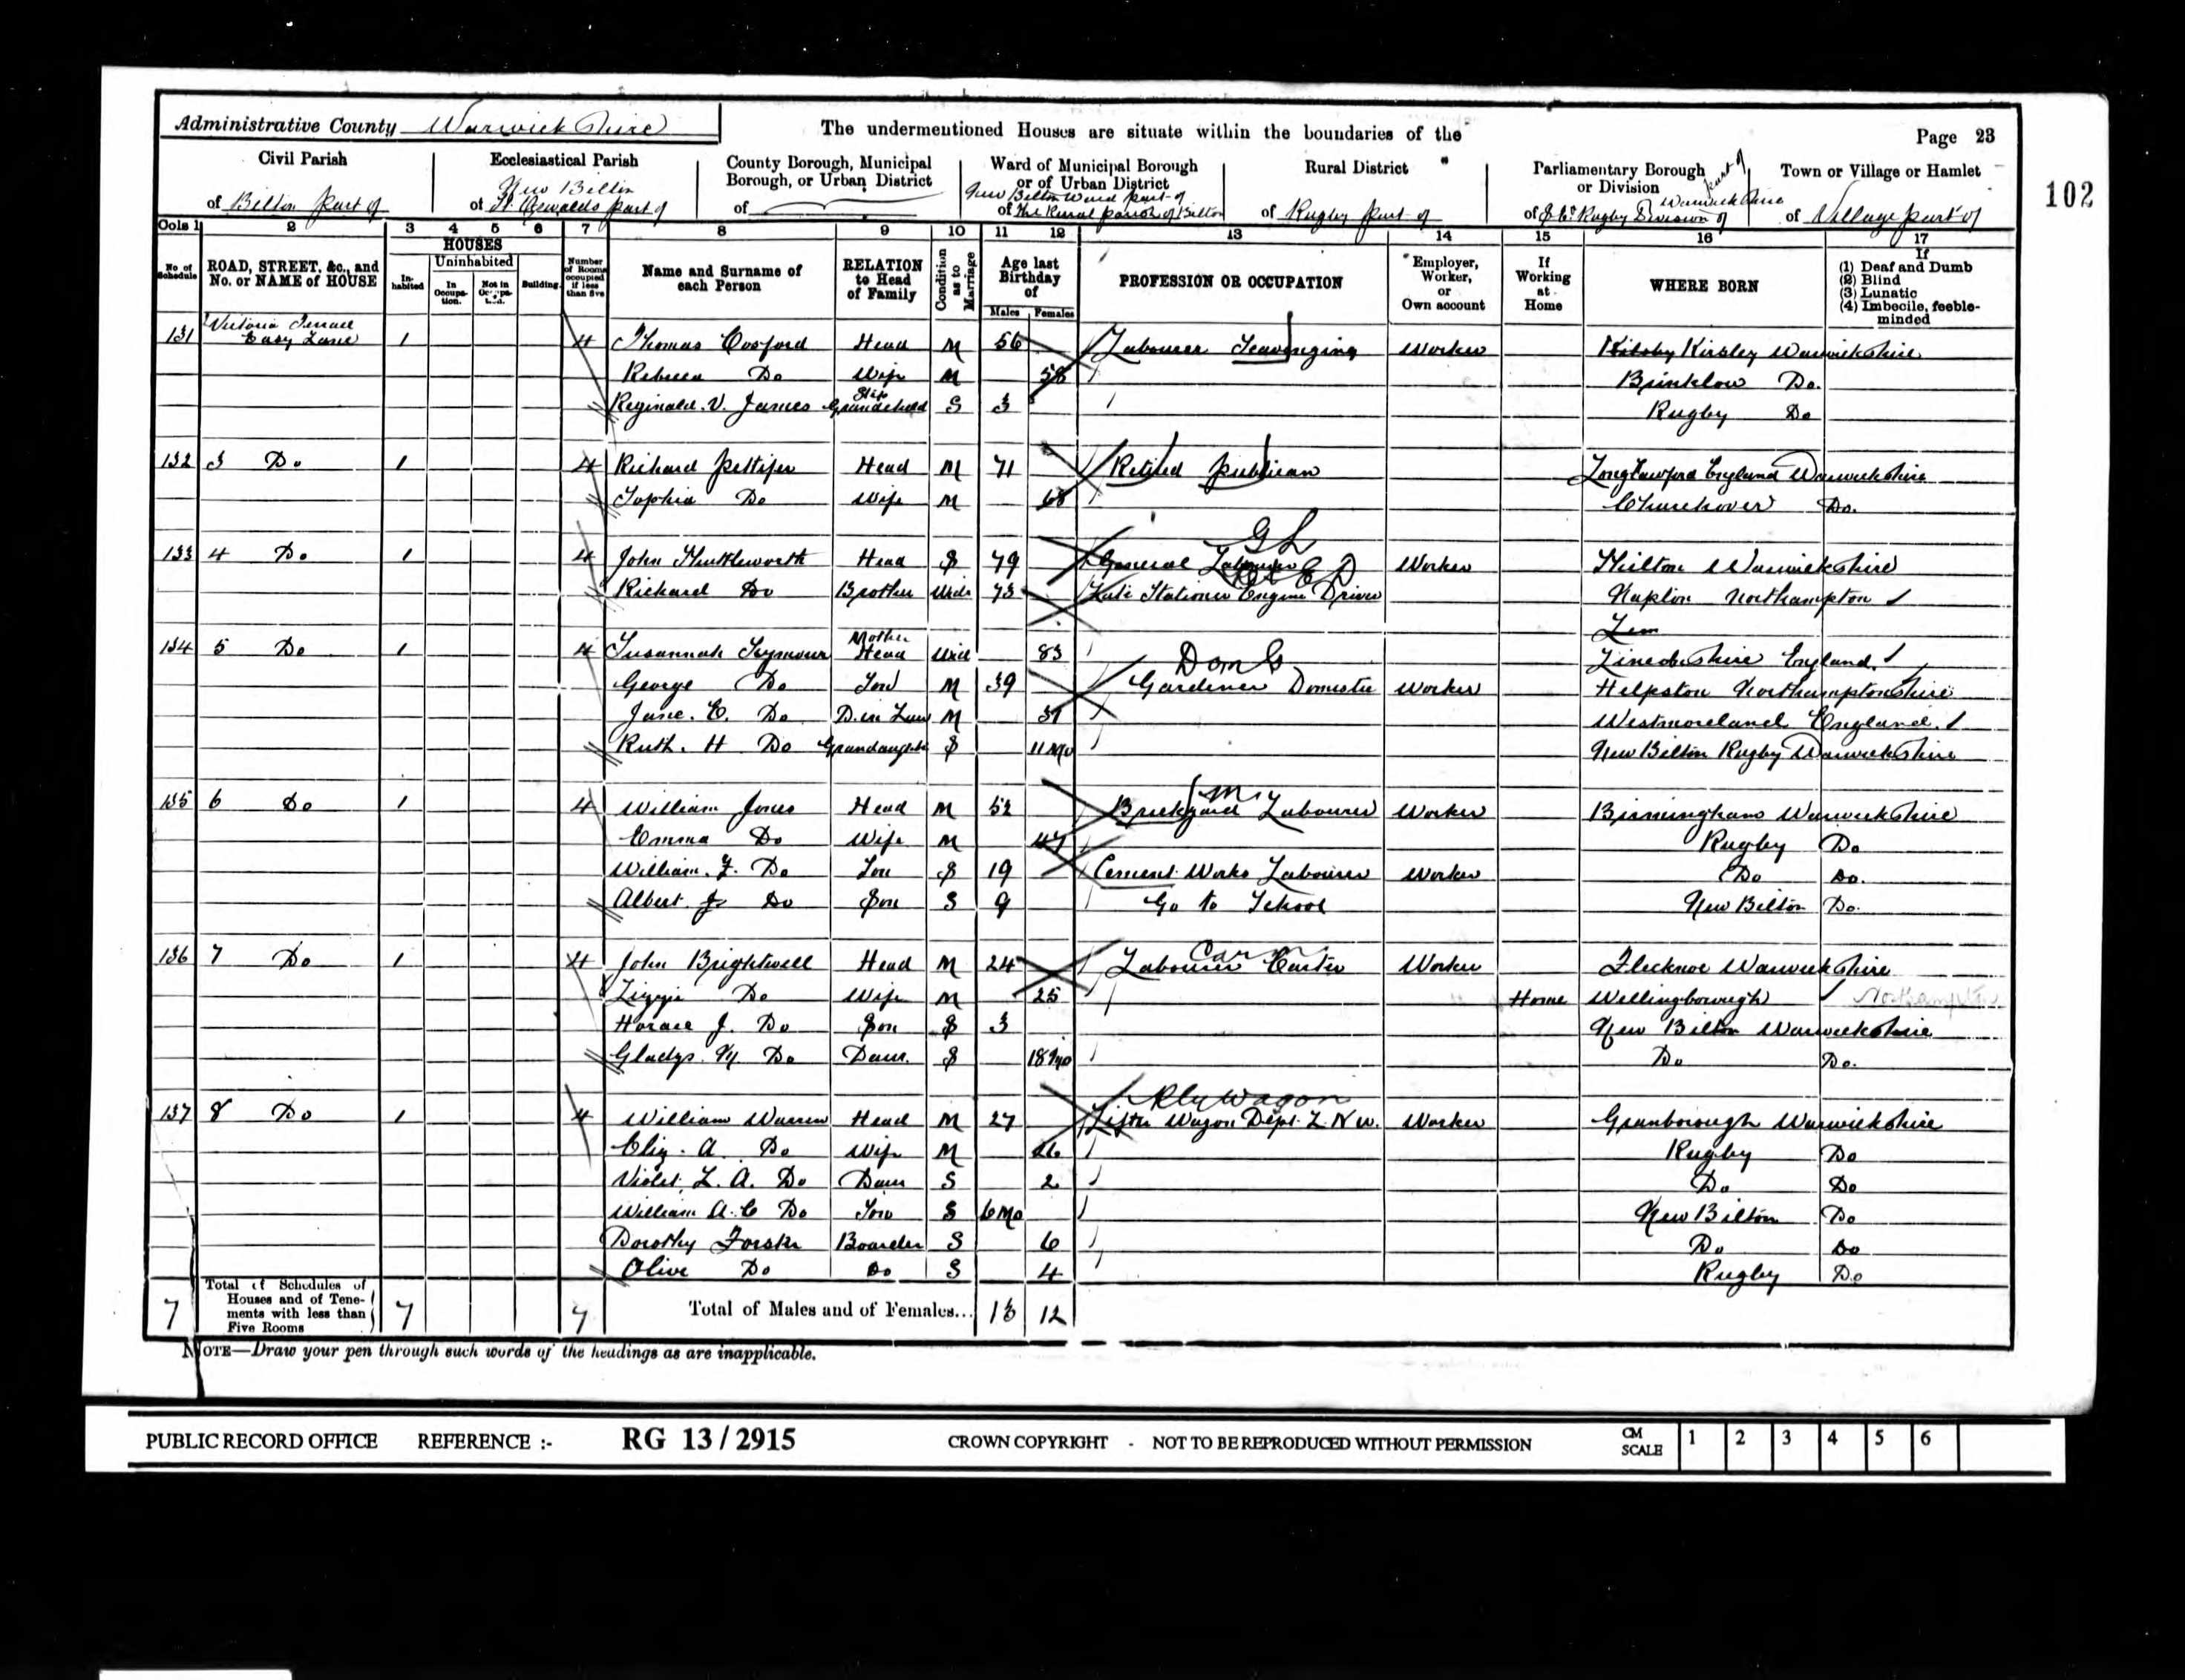 Administrative County Warwickshire
The undermentioned Houses are situate within the boundaries of the
Page 23
102
Civil Parish of Bilton part of
Ecclesiastical Parish of New Bilton St. Oswalds part of
County Borough, Municipal Borough, or Urban District of
Ward of Municipal Borough or of Urban District of New Bilton Ward part of the Rural parish of Bilton
Rural District of Rugby part of
Parliamentary Borough or Division of Rugby Division of Warwickshire part of
Town or Village or Hamlet of Village part of
Cols 1 2 3 4 5 6 7 8 9 10 11 12 13 14 15 16 17
No of Schedule
ROAD, STREET, &c., and No. or NAME of HOUSE
HOUSES
In-habited
Uninhabited
In Occupa-tion.
Not in Occupa-tion.
Building.
Number of Rooms occupied if less than five
Name and Surname of each Person
RELATION to Head of Family
Condition as to Marriage
Age last Birthday of
Males Females
PROFESSION OR OCCUPATION
Employer, Worker, or Own account
If Working at Home
WHERE BORN
If (1) Deaf and Dumb (2) Blind (3) Lunatic (4) Imbecile, feeble-minded
131 Victoria Terrace Lane 1 4 Thomas Cosford Head M 56 Labourer Scavenging Worker Kilsby Kirsley Warwickshire
Rebecca Do Wife M 58 Brinklow Do.
Reginald. V. James Step Grandchild S 3 Rugby Do
132 3 Do 1 4 Richard Pettifer Head M 71 Retired Publican Long Lawford England Warwickshire
Sophia Do Wife M 68 Churchover Do.
GL
133 4 Do 1 4 John Shuttleworth Head S 79 General Labourer Worker Hilton Warwickshire
Richard Do Brother Wid 73 Late Stationer Engine Driver Napton Northampton
134 5 Do 1 4 Susannah Seymour Mother Head Wid 83 Lincolnshire England.
Dom G
George Do Son M 39 Gardener Domestic Worker Helpston Northamptonshire
Jane. E. Do D. in Law M 37 Westmoreland England.
Ruth. H Do Grandaughter S 11 Mo New Bilton Rugby Warwickshire
135 6 Do 1 4 William Jones Head M 52 Brickyard Labourer Worker Birmingham Warwickshire
Emma Do Wife M 47 Rugby Do
William. F. Do Son S 19 Cement Works Labourer Worker Do Do.
Albert. J Do Son S 9 Go to School New Bilton Do.
136 7 Do 1 4 John Brightwell Head M 24 Labourer Carter Worker Flecknoe Warwickshire
Lizzie Do Wife M 25 Home Wellingborough Northampton
Horace J. Do Son S 3 New Bilton Warwickshire
Gladys. M Do Daur. S 18 Mo Do Do.
Rly Wagon
137 8 Do 1 4 William Warren Head M 27 Lifter Wagon Dept. L. N W. Worker Granborough Warwickshire
Eliz. A. Do Wife M 26 Rugby Do
Violet. L. A. Do Daur S 2 Do Do
William A. C Do Son S 6 Mo New Bilton Do
Dorothy Boarder S 6 Do Do
Olive Do Do S 4 Rugby Do
7 Total of Schedules of Houses and of Tene-ments with less than Five Rooms 7 7 Total of Males and of Females... 13 12
NOTE—Draw your pen through such words of the headings as are inapplicable.
PUBLIC RECORD OFFICE REFERENCE :- RG 13 / 2915 CROWN COPYRIGHT - NOT TO BE REPRODUCED WITHOUT PERMISSION CM SCALE 1 2 3 4 5 6